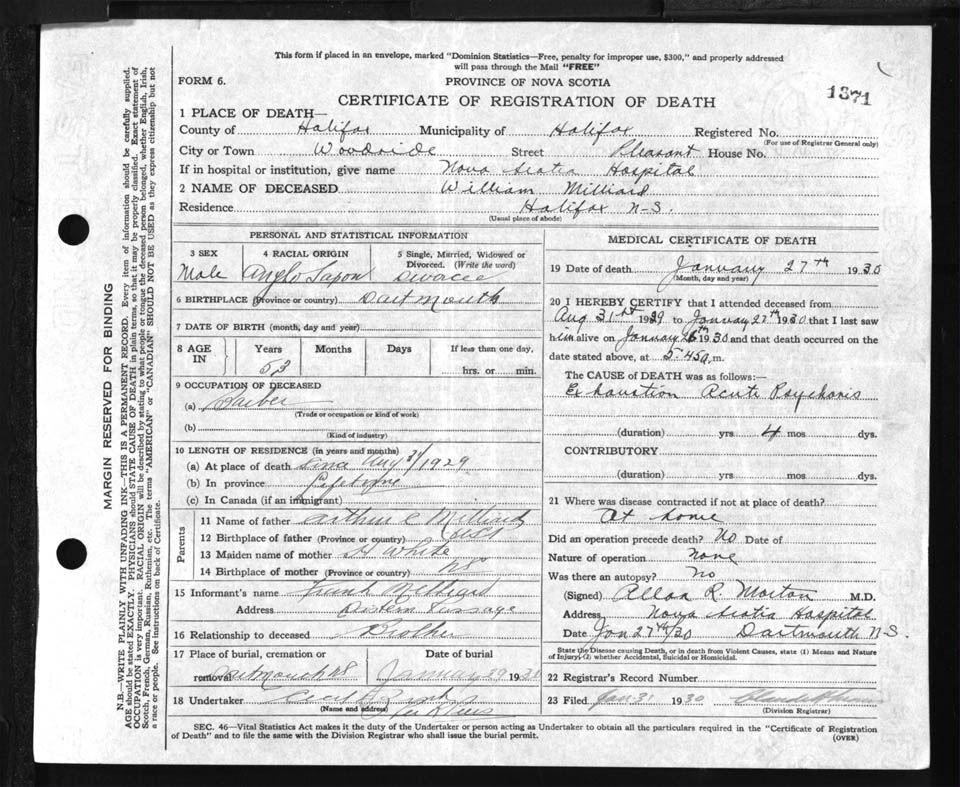 This form if placed in an envelope, marked "Dominion Statistics—Free, penalty for improper use, $300," and properly addressed
will pass through the Mail "FREE"
FORM 6.
PROVINCE OF NOVA SCOTIA
CERTIFICATE OF REGISTRATION OF DEATH
1371
1 PLACE OF DEATH—
County of Halifax Municipality of Halifax Registered No.
(For use of Registrar General only)
City or Town Woodside Street Pleasant House No.
If in hospital or institution, give name Nova Scotia Hospital
2 NAME OF DECEASED William Milliard
Residence Halifax N-S.
(Usual place of abode)
PERSONAL AND STATISTICAL INFORMATION
3 SEX 4 RACIAL ORIGIN 5 Single, Married, Widowed or
Divorced. (Write the word)
Male Anglo Saxon Divorcee
6 BIRTHPLACE (Province or country) Dartmouth
7 DATE OF BIRTH (month, day and year)
8 AGE IN Years Months Days If less than one day,
53 hrs. or min.
9 OCCUPATION OF DECEASED
(a) Barber
(Trade or occupation or kind of work)
(b)
(Kind of industry)
10 LENGTH OF RESIDENCE (in years and months)
(a) At place of death since Aug 31/1929
(b) In province Lifetime
(c) In Canada (if an immigrant)
Parents
11 Name of father Arthur C
12 Birthplace of father (Province or country)
13 Maiden name of mother White
14 Birthplace of mother (Province or country) NS
15 Informant's name Frank
Address Eastern Passage
16 Relationship to deceased Brother
17 Place of burial, cremation or Date of burial
removal Dartmouth NS January 29 1930
18 Undertaker
(Name and address)
MEDICAL CERTIFICATE OF DEATH
19 Date of death January 27th 1930
(Month, day and year)
20 I HEREBY CERTIFY that I attended deceased from
Aug 31st 1929 to January 27th 1930 that I last saw
him alive on January 26th 1930 and that death occurred on the
date stated above, at 5-45a.m.
The CAUSE OF DEATH was as follows:—
Exhaustion Acute Psychosis
(duration) yrs 4 mos dys.
CONTRIBUTORY
(duration) yrs mos dys.
21 Where was disease contracted if not at place of death?
At home
Did an operation precede death? No Date of
Nature of operation None
Was there an autopsy? No
(Signed) Allan R. Morton M.D.
Address Nova Scotia Hospital
Date Jan 27th/30 Dartmouth N S.
State the Disease causing Death, or in death from Violent Causes, state (1) Means and Nature
of Injury; (2) whether Accidental, Suicidal or Homicidal.
22 Registrar's Record Number
23 Filed Jan 31 1930
(Division Registrar)
SEC. 46—Vital Statistics Act makes it the duty of the Undertaker or person acting as Undertaker to obtain all the particulars required in the "Certificate of Registration
of Death" and to file the same with the Division Registrar who shall issue the burial permit.
(OVER)
MARGIN RESERVED FOR BINDING
N.B.—WRITE PLAINLY WITH UNFADING INK.—THIS IS A PERMANENT RECORD. Every item of information should be carefully supplied.
AGE should be stated EXACTLY. PHYSICIANS should STATE CAUSE OF DEATH in plain terms, so that it may be properly classified. Exact statement of
OCCUPATION is very important. RACIAL ORIGIN will be described by stating to what people or tongue the deceased person belonged, whether English, Irish,
Scotch, French, German, Russian, Ruthenian, etc. The terms "AMERICAN" or "CANADIAN" SHOULD NOT BE USED as they express citizenship but not
a race or people. See instructions on back of Certificate.